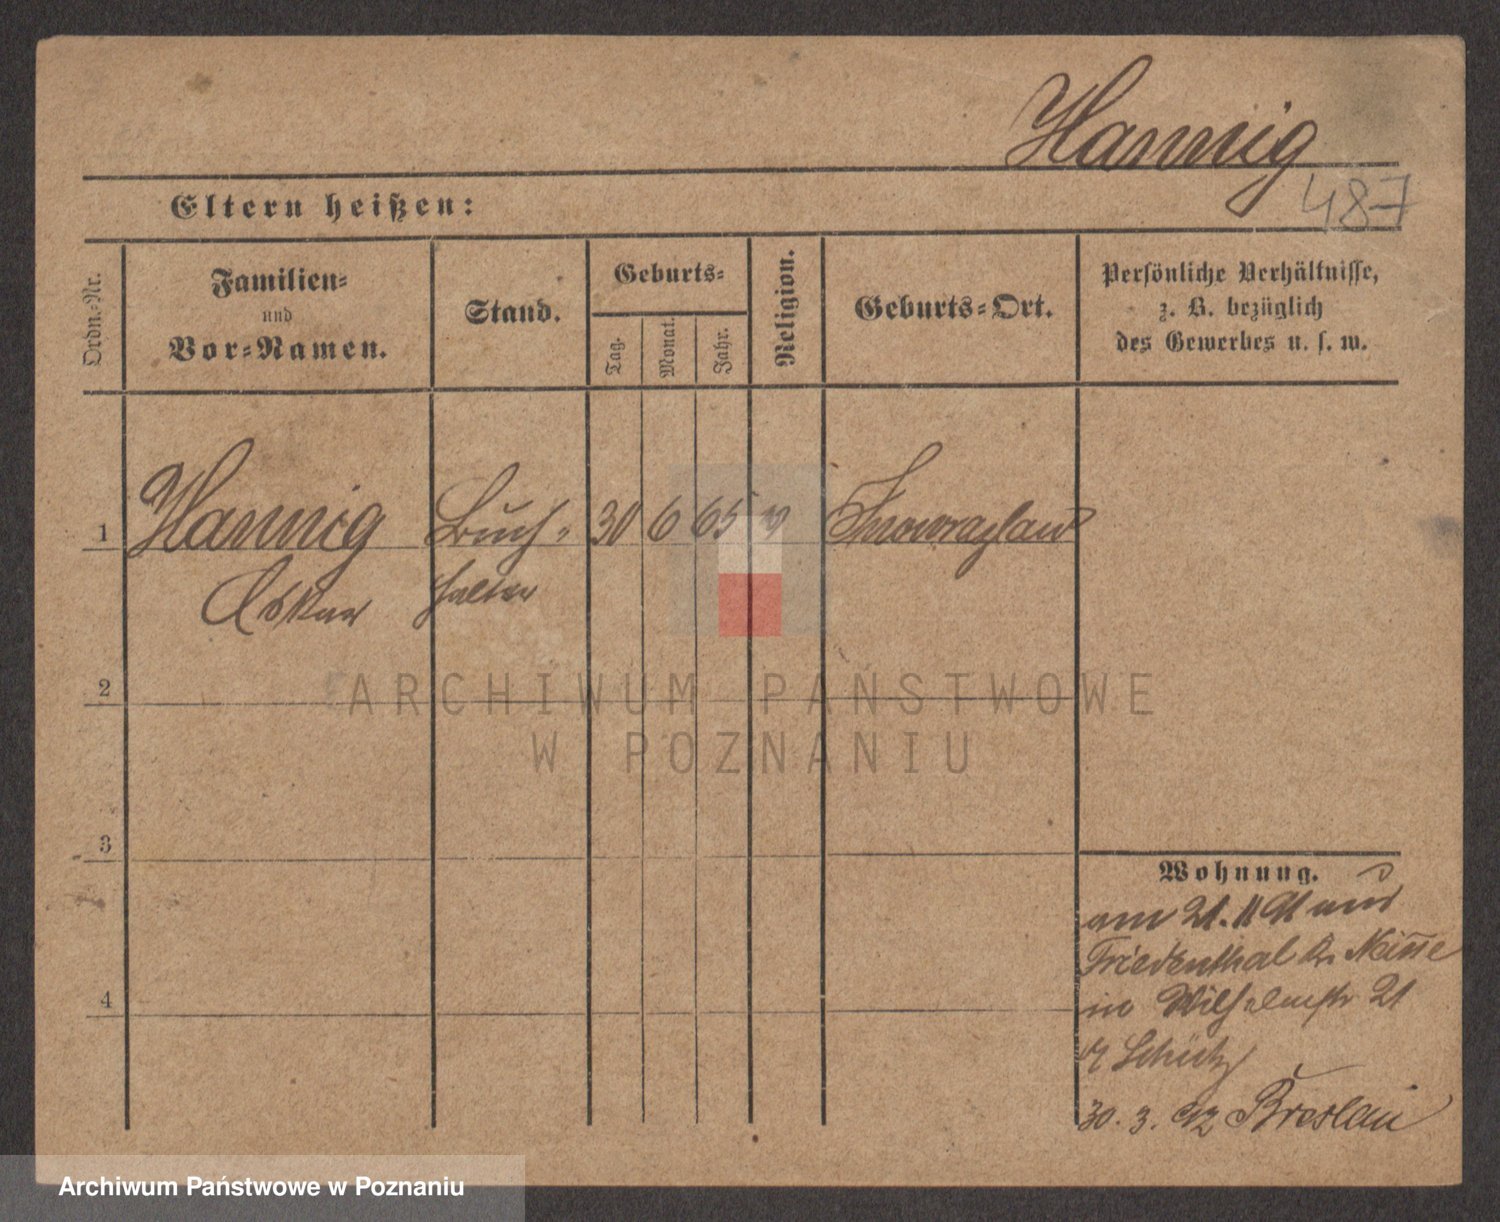 Hannig
487
Eltern heißen:
Ordn.-Nr.
Familien-
und
Vor-Namen.
Stand.
Geburts-
Tag.
Monat.
Jahr.
Religion.
Geburts-Ort.
Persönliche Verhältnisse,
z. B. bezüglich
des Gewerbes u. s. w.
1 Hannig Buch- 30 6 65 Inowrazlaw
Oskar halter
ARCHIWUM PAŃSTWOWE
W POZNANIU
2
3
4
Wohnung.
am 21. 11 91 aus
Friedenthal Kr. Neisse
in Wilhelmstr 21
Schütz
30. 3. 92 Breslau
Archiwum Państwowe w Poznaniu